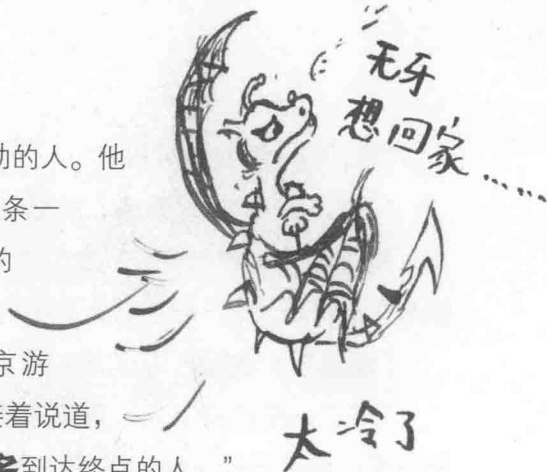 无牙
想回家……
动的人。他
条一
的
京游
接着说道，
到达终点的人。”
太冷了